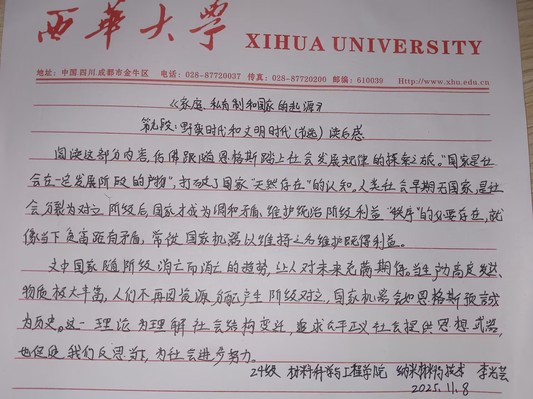 西華大学 XIHUA UNIVERSITY
地址：中国.四川.成都市金牛区 电话：028-87720037 传真：028-87720200 邮编：610039 Http://www.xhu.edu.cn
《家庭、私有制和国家的起源》
第九段：野蛮时代和文明时代（节选）读后感
阅读这部分内容，仿佛跟随恩格斯踏上社会发展规律的探索之旅。“国家是社
会在一定发展阶段的产物”，打破了国家“天然存在”的认知，人类社会早期无国家，是社
会分裂为对立阶级后，国家才成为调和矛盾、维护统治阶级利益“秩序”的必要存在，就
像当下贫富距有矛盾，常依国家机器以维持之名维护既得利益。
文中国家随阶级消亡而消亡的趋势，让人对未来充满期待。当生动高度发达、
物质极大丰富，人们不再因资源分配产生阶级对立，国家机器会如恩格斯预言成
为历史。这一理论为理解社会结构变迁，追求公平正义社会提供思想武器，
也促使我们反思当下，为社会进步努力。
24级 材料科学与工程学院 纳米材料与技术 李
2025.11.8